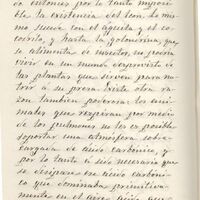 da entonces por lo tanto imposi
ble la existencia del leon. Lo mis
mo sucede con el águila y el co
codrilo, y hasta la golondrina, que
se alimenta de insectos, no podria
vivir en un mundo desprovisto de
las plantas que sirven para nu
trir a su presa. Existe otra ra
zon tambien poderosa: los ani
males que respiran por medio
de los pulmones no les es posible
soportar una atmósfera sobre
cargada de ácido carbónico, y
por lo tanto á sido necesario que
se disipara ese ácido carbóni
co que dominaba primitiva
mente en el aire